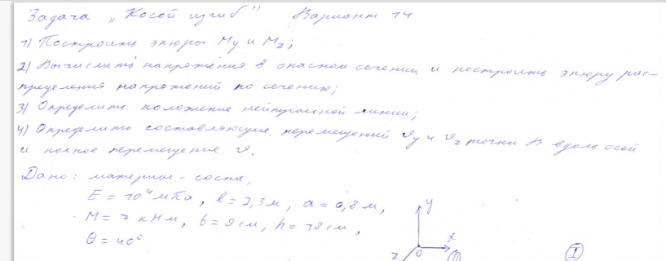 Задача „Косой изгиб" Вариант 14
1) Построить эпюры My и Mz;
2) Вычислить напряжения в опасном сечении и построить эпюру рас-
пределения напряжений по сечению;
3) Определить положение нейтральной линии;
4) Определить составляющие перемещений vy и vz точки B вдоль осей
и полное перемещение v.
Дано: материал - сосна,
E = 10⁴ мПа, l = 2,3м, a = 0,8м,
M = 7 кНм, b = 9см, h = 18см,
θ = 40°
y
x
z 0
I